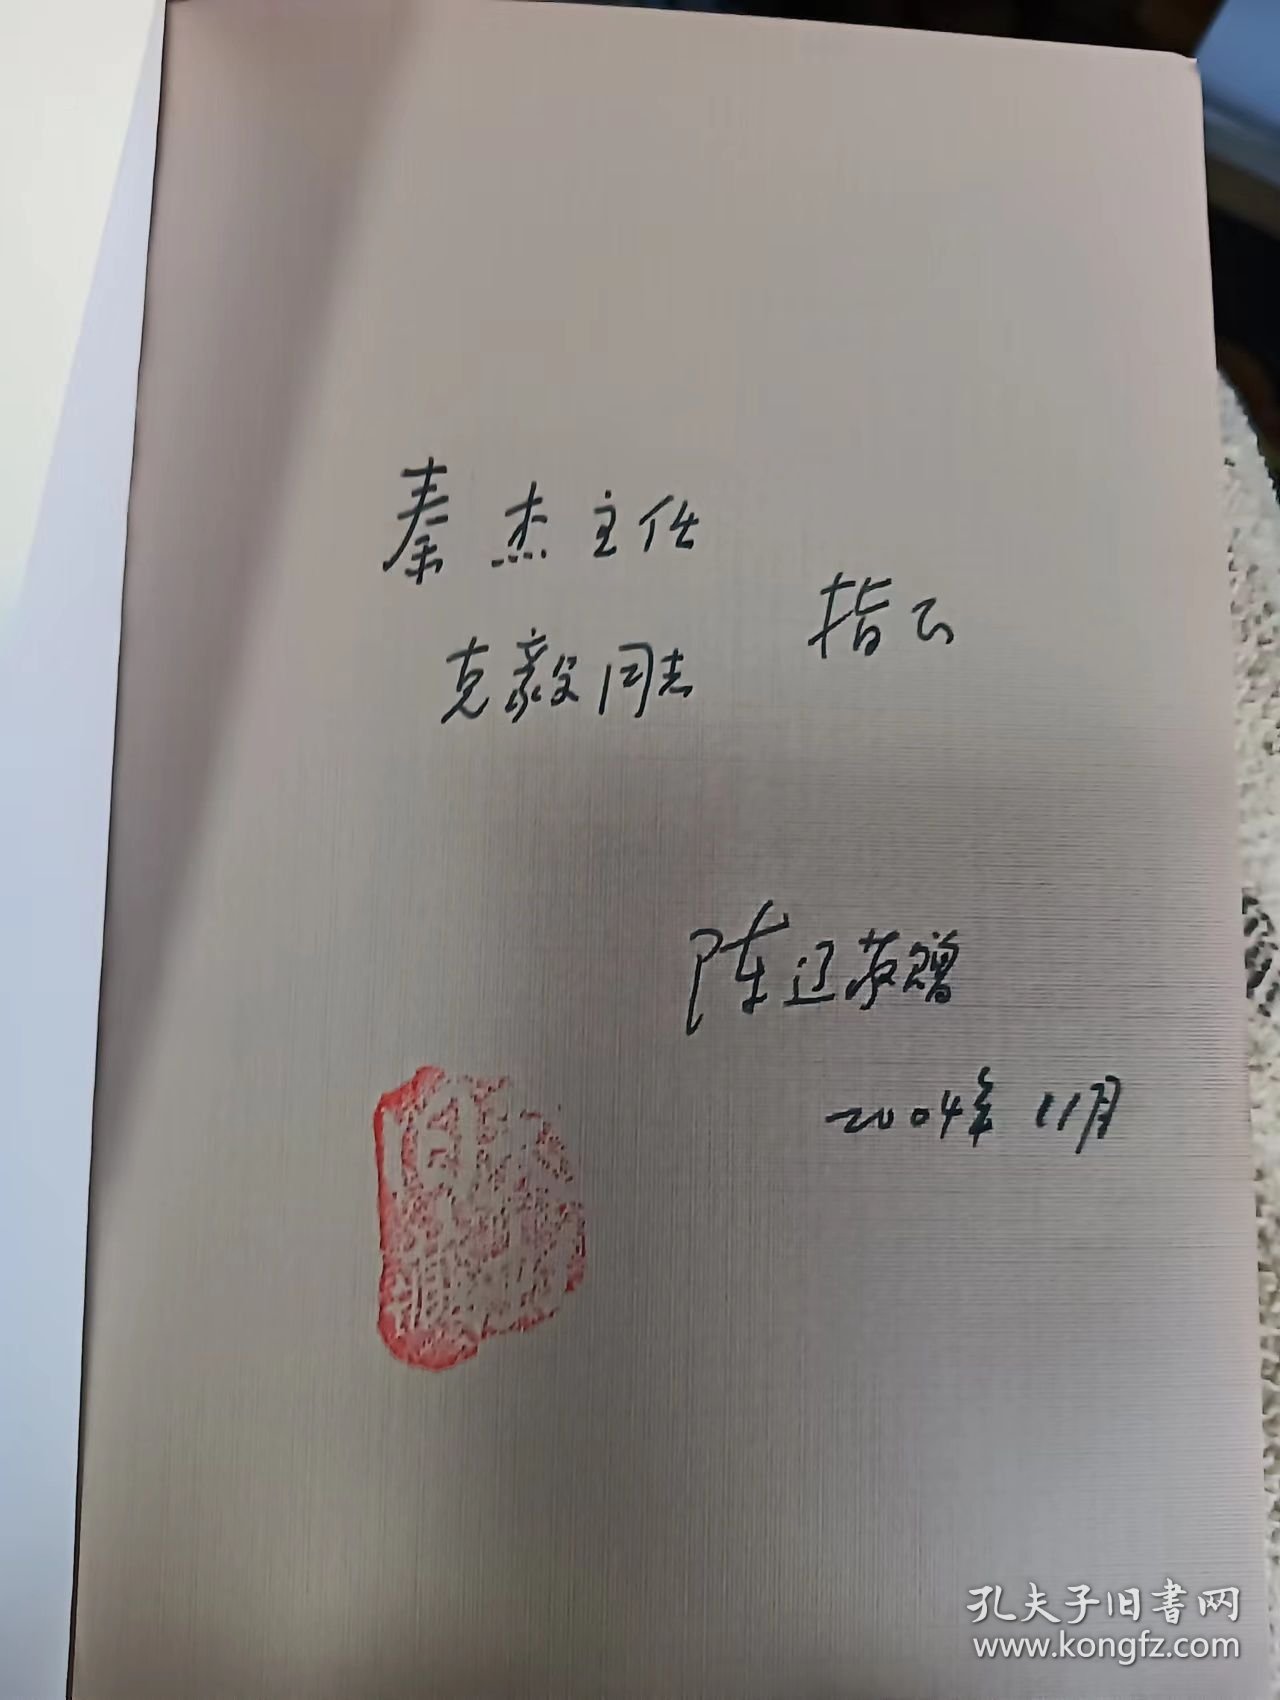 秦杰主任
克毅同志
指正
陈辽英赠
2004年11月
孔夫子旧書网
www.kongfz.com